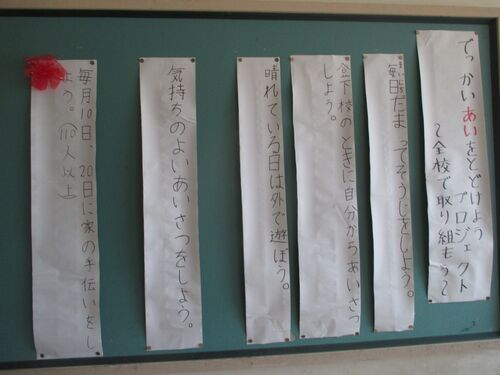 でっかいあいをとどけよう
プロジェクト
～全校で取り組もう～
毎日だまってそうじをしよう。
登下校のときに自分からあいさつ
しよう。
晴れている日は外で遊ぼう。
気持ちのよいあいさつをしよう。
毎月10日、20日に家の手伝いをし
よう。(110人以上)